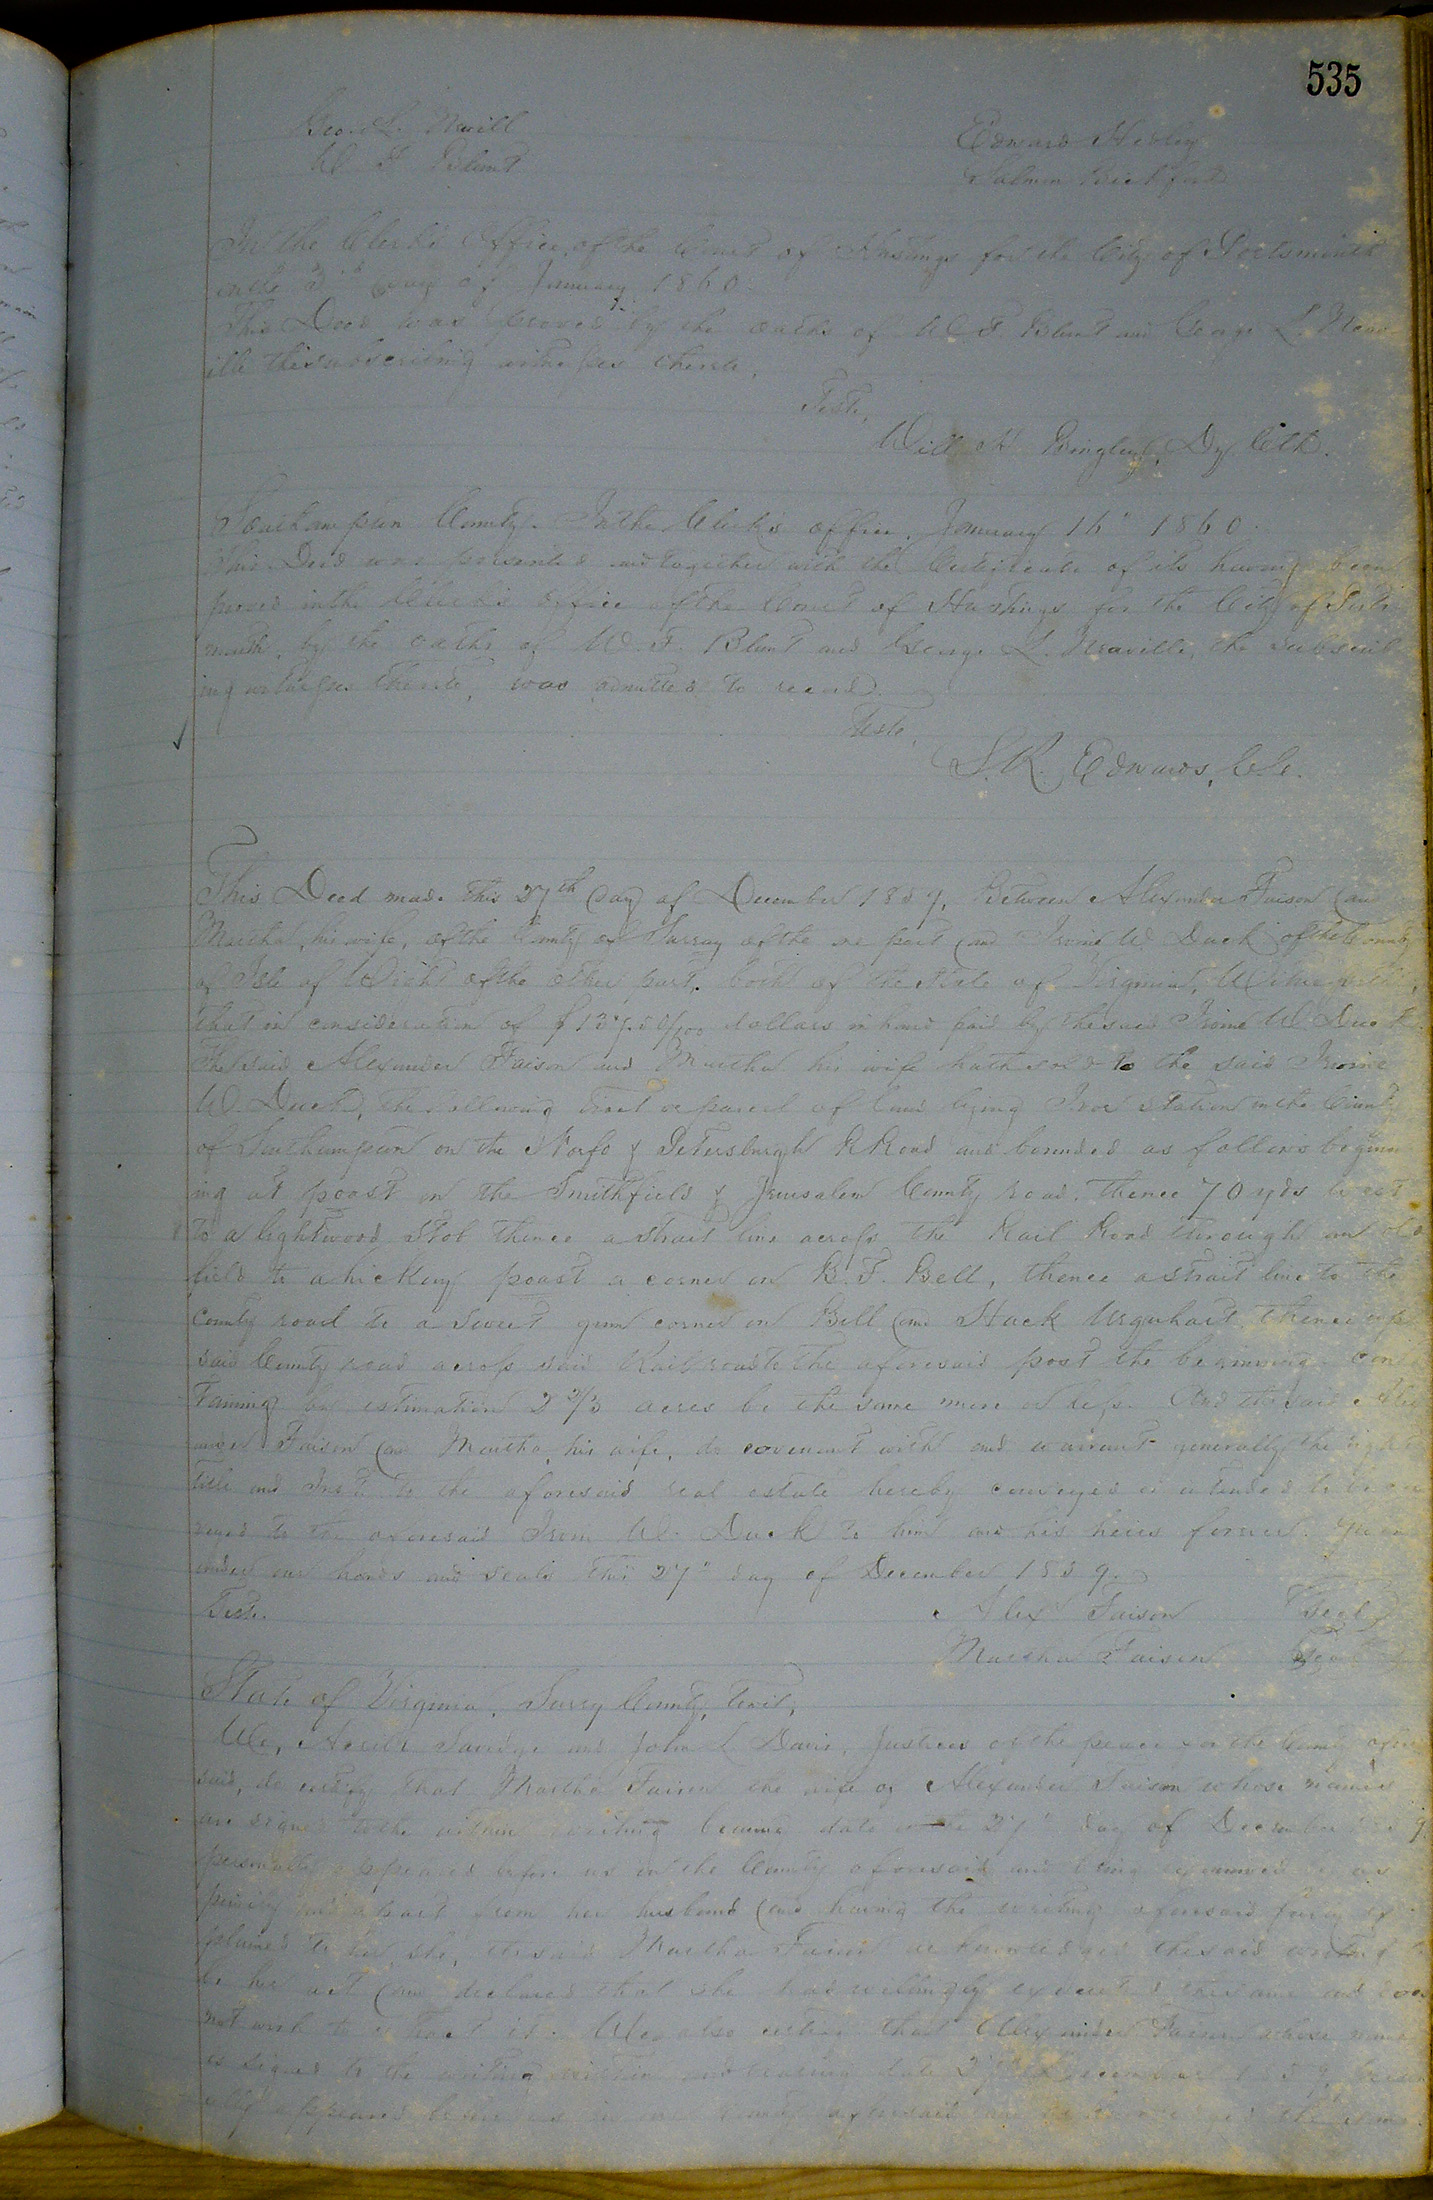 535
Geo. L. Nevill
W. F. Blunt
Edward Herley
Salmon Bickford
In the Clerk's Office of the Court of Hastings for the City of Portsmouth
on the 3rd day of January 1860.
This Deed was proved by the oaths of W F. Blunt and George L. Neav
ille the subscribing witnesses thereto.
Teste,
Will H. Dy Clk.
Southampton County. In the Clerk's office, January 16" 1860.
This Deed was presented and together with the Certificate of its having been
proved in the Clerk's office of the Court of Hustings for the City of Ports
mouth, by the oaths of W. F. Blunt and George L. Neaville, the subscrib
ing witnesses thereto, was admitted to record.
Teste,
L. R. Edwards, C.C.
This Deed made this 27th day of December 1859, Between Alexander Faison and
Martha, his wife, of the County of Surray of the one part and W Duck of the County
of Isle of Wight of the other part, both of the State of Virginia, Witnesseth,
that in consideration of $137.50/100 dollars in hand paid by the said W. Duck
The said Alexander Faison and Martha his wife hath sold to the said
W. Duck, the following tract or parcel of land lying Ivor Station in the County
of Southampton on the Norfo & Petersburgh R Road and bounded as follows beginn
ing at poast on the Smithfield & Jerusalem County road. thence 70 yds to
to a lightwood stob thence a strait line across the Rail Road through an old
field to a hickory poast a corner on B. F. Bell, thence a strait line to the
County road to a sweet gum corner on Bell and Hack Urquhart thence up
said County road across said Railroad to the aforesaid post the beginning. con
taining by estimation 2 2/3 acres be the same more or less. And the said Alex
ander Faison and Martha, his wife, do covenant with and warrant generally the right
title and to the aforesaid real estate hereby conveyed or intended to be con
veyed to the aforesaid W. Duck to him and his heirs forever. Given
under our hands and seals this 27" day of December 1859.
Teste.
Alexr Faison Seal
Martha Faison Seal
State of Virginia, Surry County, towit,
We, Savedge and John L Davis, Justices of the peace for the County afore
said, do certify that Martha Faison the wife of Alexander Faison whose names
are signed to the within writing bearing date on the 27" day of December 1859
personally appeared before us in the County aforesaid and being examined by us
privily and apart from her husband and having the writing aforesaid fully ex
plained to her, she, the said Martha Faison acknowledged the said writing to
be her act and declared that she had willingly executed the same and does
not wish to retract it. We also certify that Alexander Faison whose name
is signed to the writing within and bearing date 27th December 1859, person
ally appeared before us in our County aforesaid and acknowledged the same.